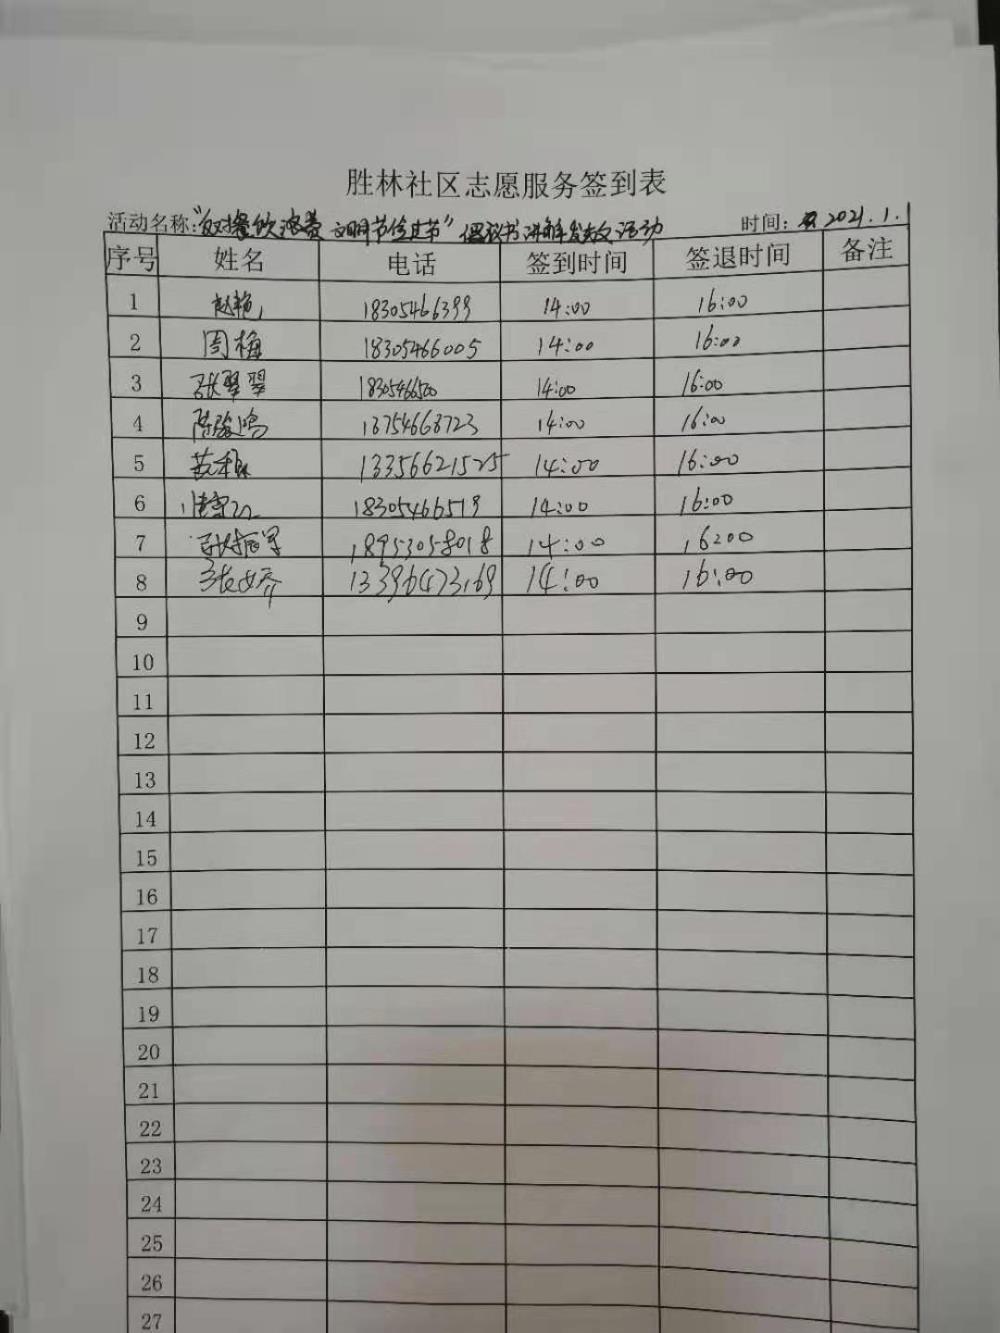 胜林社区志愿服务签到表
活动名称:“反对餐饮浪费 文明节俭过节”倡议书讲解发放活动 时间: 2021.1.1
序号 姓名 电话 签到时间 签退时间 备注
1 赵艳 18305466399 14:00 16:00
2 周梅 18305466005 14:00 16:00
3 张翠翠 1830546500 14:00 16:00
4 陈骏鸣 13754668723 14:00 16:00
5 13356621525 14:00 16:00
6 18305466519 14:00 16:00
7 张振军 18953058018 14:00 16:00
8 张娇 13396473169 14:00 16:00
9
10
11
12
13
14
15
16
17
18
19
20
21
22
23
24
25
26
27